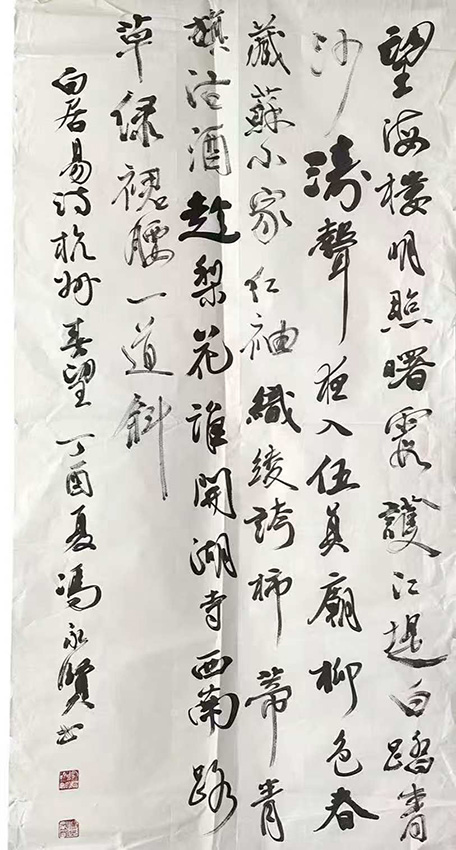 望海楼明照曙霞護江堤白踏青
沙濤聲夜入伍員廟柳色春
藏蘇小家红袖織綾誇柿蒂青
旗沽酒趁梨花誰開湖寺西南路
草绿裙腰一道斜
白居易诗杭州春望丁酉夏馮永賢书